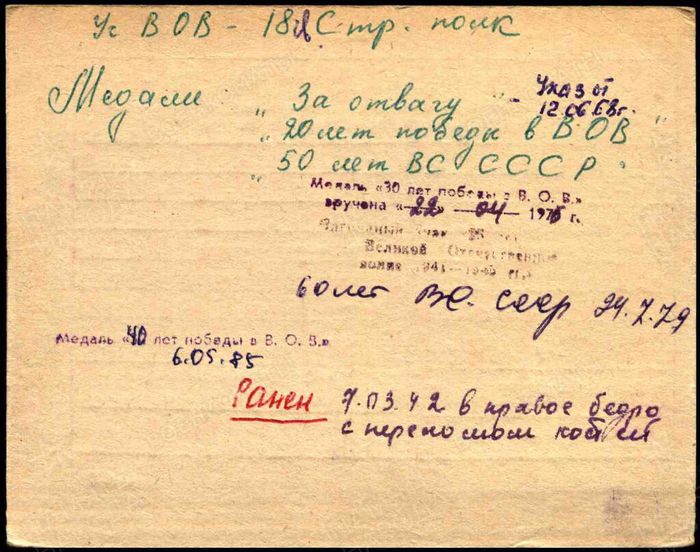 Уч ВОВ - 18 Стр. полк
Медали „За отвагу" - Указ от
12.06.68г.
„20 лет победы в ВОВ"
„50 лет ВС СССР"
Медаль «30 лет победы в В. О. В.»
вручена «22» 04 1975 г.
Великой Отечественной
войне 1941—1945 гг.»
60 лет ВС. СССР 24.7.79
Медаль «40 лет победы в В. О. В.»
6.05.85
Ранен 7.03.42 в правое бедро
с переломом костей